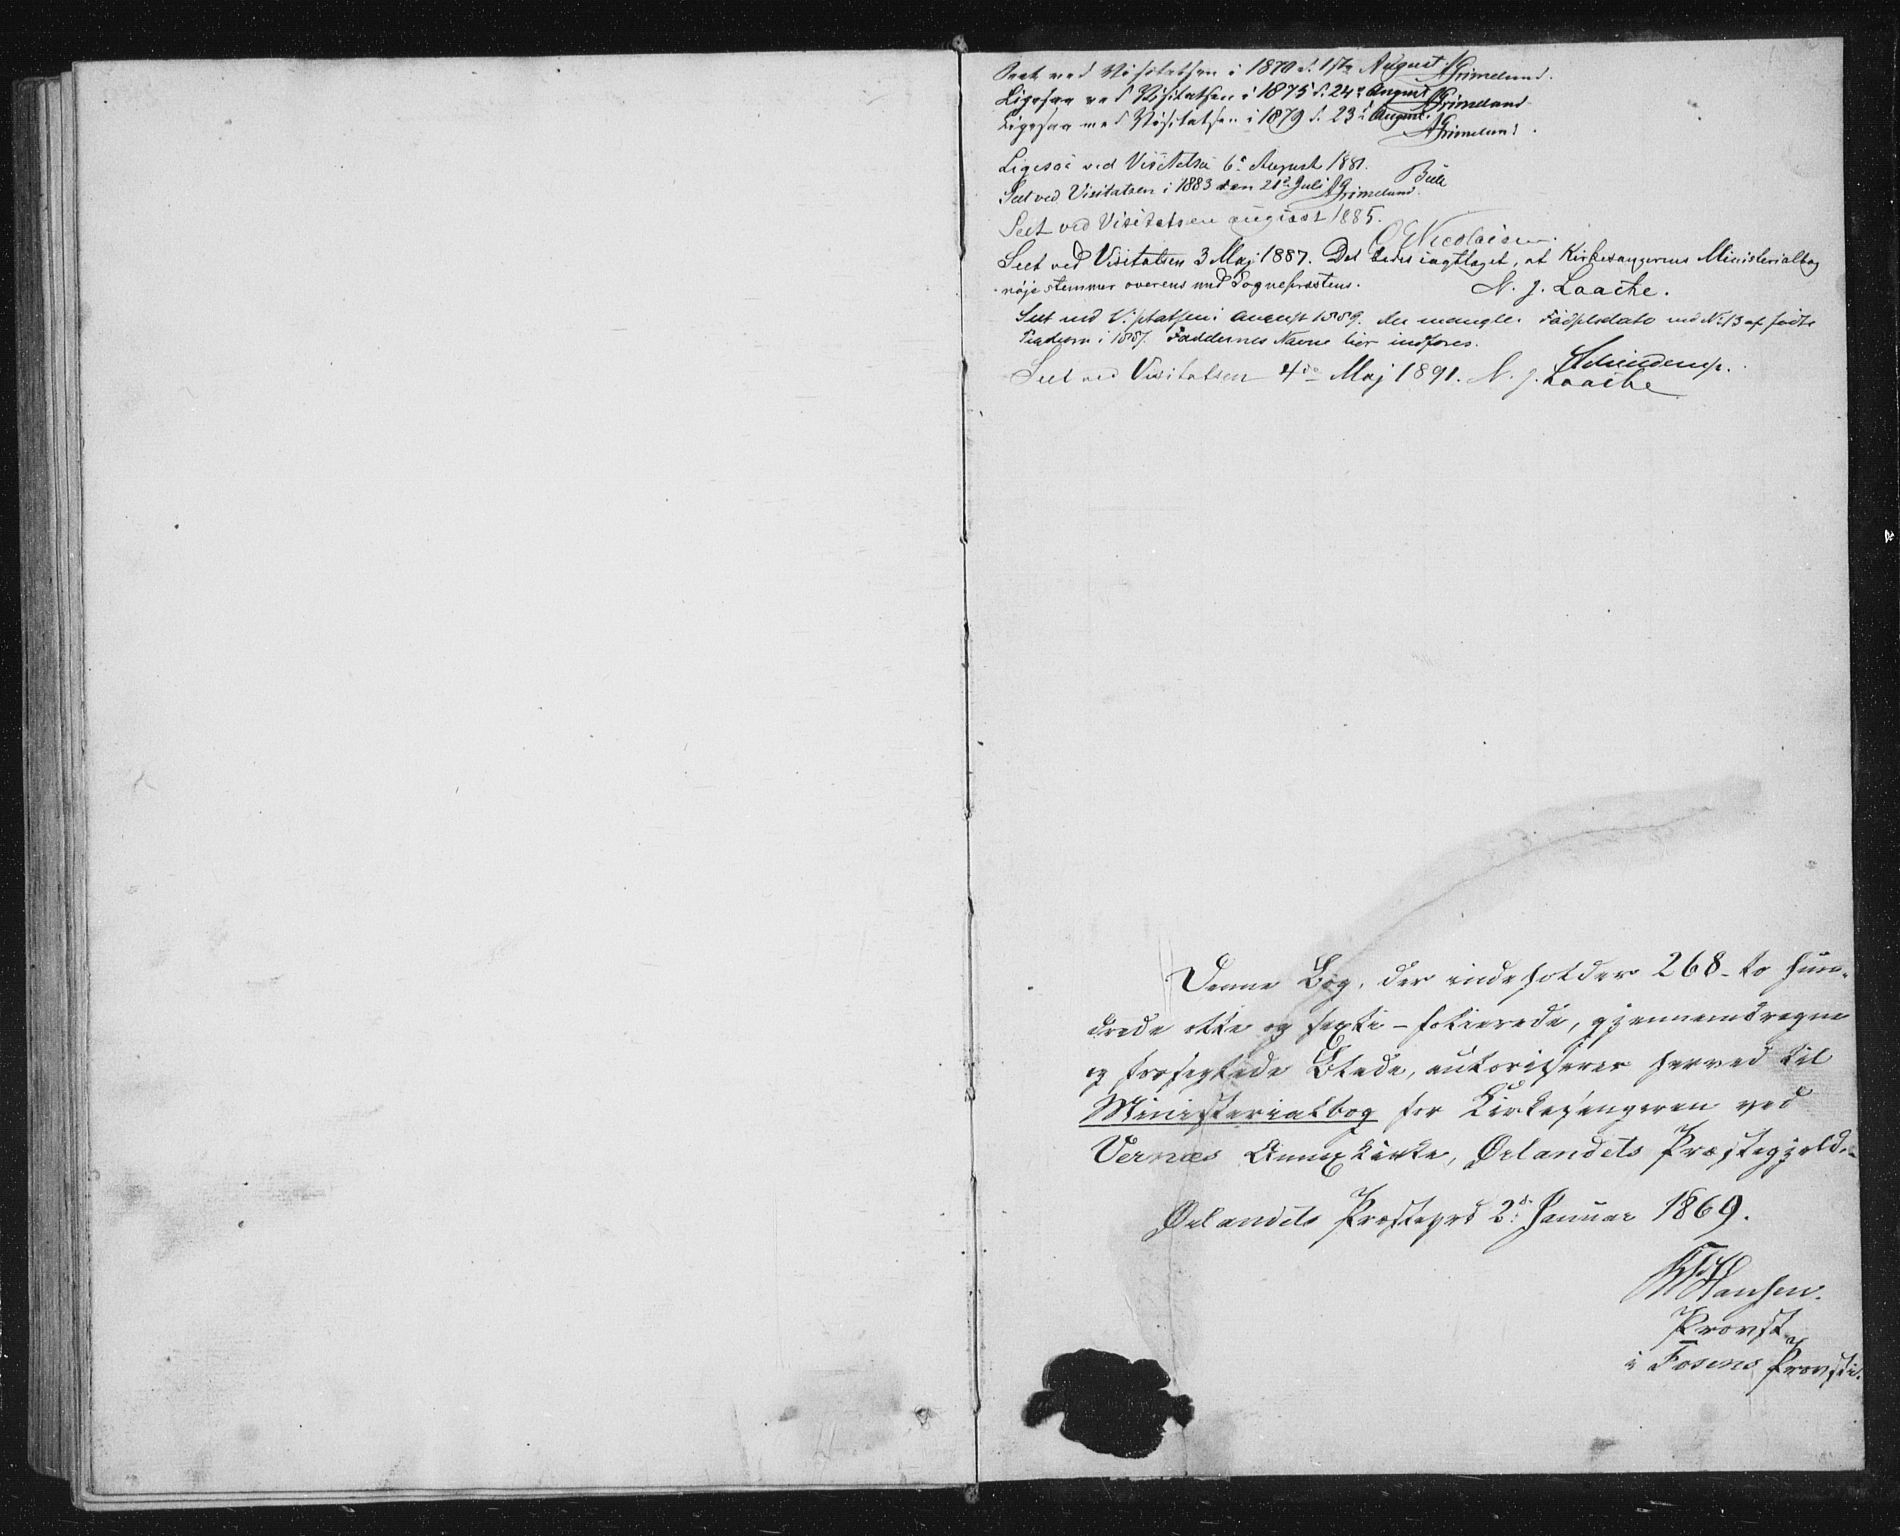 Seet ved Visitatsen i 1870 d. 1ste August AGrimelund.
Ligesaa ved Visitatsen i 1875 d. 24de August AGrimelund
Ligesaa ved Visitatsen i 1879 d. 23d August AGrimelund.
Ligesaa ved Visitatsen 6te August 1881. Bull
Seet ved Visitatsen i 1883 den 21de Juli AGrimelund.
Seet ved Visitatsen august 1885.
Nicolaisen.
Seet ved Visitatsen 3 Maj 1887. Det bedes iagttaget, at Kirkesangerens Ministerialbog
nøje stemmer overens med Sognepræstens. N. J. Laache.
Seet ved Visitatsen i august 1889. der mangler Fødselsdato ved No 13 af fødte
i 1887. Faddernes Navne bør indføres.
Seet ved Visitatsen 4de Maj 1891. N. J. Laache
Denne Bog, der indeholder 268 - to hun-
drede otte og sexti - folierede, gjennemdragne
og forseglede Blade, autoriseres herved til
Ministerialbog for Kirkesangeren ved
Vernæs Annexkirke, Ørlandets Præstegjeld.
Ørlandets Præstegrd 2d Januar 1869.
Hansen.
Provst
i Fosens Provsti.